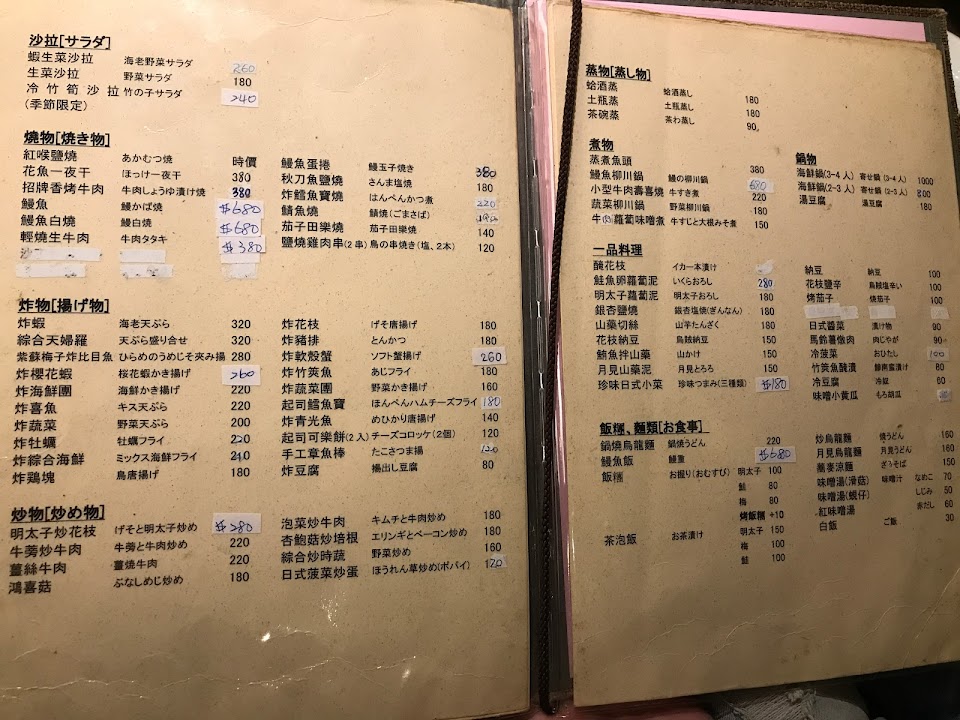 沙拉[サラダ]
蝦生菜沙拉 海老野菜サラダ 260
生菜沙拉 野菜サラダ 180
冷竹筍沙拉 竹の子サラダ 240
(季節限定)
燒物[焼き物]
紅喉鹽燒 あかむつ焼 時價
花魚一夜干 ほっけ一夜干 380
招牌香烤牛肉 牛肉しょうゆ漬け焼 380
鰻魚 鰻かば焼 $680
鰻魚白燒 鰻白焼 $680
輕燒生牛肉 牛肉タタキ $380
沙
鰻魚蛋捲 鰻玉子焼き 380
秋刀魚鹽燒 さんま塩焼 180
炸鱈魚寶燒 はんぺんかつ煮 220
鯖魚燒 鯖焼(ごまさば)
茄子田樂燒 茄子田樂焼 140
鹽燒雞肉串(2串) 鳥の串焼き(塩、2本) 120
炸物[揚げ物]
炸蝦 海老天ぷら 320
綜合天婦羅 天ぷら盛り合せ 320
紫蘇梅子炸比目魚 ひらめのうめじそ夾み揚 280
炸櫻花蝦 桜花蝦かき揚げ 260
炸海鮮團 海鮮かき揚げ 220
炸喜魚 キス天ぷら 220
炸蔬菜 野菜天ぷら 200
炸牡蠣 牡蠣フライ 220
炸綜合海鮮 ミックス海鮮フライ 240
炸鶏塊 鳥唐揚げ 180
炸花枝 げそ唐揚げ 180
炸豬排 とんかつ 180
炸軟殼蟹 ソフト蟹揚げ 260
炸竹筴魚 あじフライ 180
炸蔬菜團 野菜かき揚げ 160
起司鱈魚寶 ほんぺんハムチーズフライ 180
炸青光魚 めひかり唐揚げ 140
起司可樂餅(2入) チーズコロッケ(2個) 120
手工章魚棒 たこさつま揚 120
炸豆腐 揚出し豆腐 80
炒物[炒め物]
明太子炒花枝 げそと明太子炒め $280
牛蒡炒牛肉 牛蒡と牛肉炒め 220
薑絲牛肉 薑燒牛肉 220
鴻喜菇 ぶなしめじ炒め 180
泡菜炒牛肉 キムチと牛肉炒め 180
杏鮑菇炒培根 エリンギとベーコン炒め 180
綜合炒時蔬 野菜炒め 160
日式菠菜炒蛋 ほうれん草炒め(ポパイ) 120
蒸物[蒸し物]
蛤酒蒸 蛤酒蒸し 180
土瓶蒸 土瓶蒸し 180
茶碗蒸 茶わ蒸し 90
煮物
蒸煮魚頭 380
鰻魚柳川鍋 鰻の柳川鍋 680
小型牛肉壽喜燒 牛すき煮 220
蔬菜柳川鍋 野菜柳川鍋 180
牛肉蘿蔔味噌煮 牛すじと大根みそ煮 150
鍋物
海鮮鍋(3-4人) 寄せ鍋(3-4人) 1000
海鮮鍋(2-3人) 寄せ鍋(2-3人) 800
湯豆腐 湯豆腐 180
一品料理
醃花枝 イカ一本漬け
鮭魚卵蘿蔔泥 いくらおろし 280
明太子蘿蔔泥 明太子おろし 180
銀杏鹽燒 銀杏塩焼(ぎんなん) 180
山藥切絲 山芋たんざく 180
花枝納豆 烏賊納豆 150
鮪魚拌山藥 山かけ 150
月見山藥泥 月見とろろ 150
珍味日式小菜 珍味つまみ(三種類) $180
納豆 納豆 100
花枝鹽辛 烏賊塩辛い 100
烤茄子 焼茄子 100
日式醬菜 漬け物 90
馬鈴薯燉肉 肉じゃが 90
冷菠菜 おひたし 100
竹筴魚醃漬 鯵南蛮漬け 80
冷豆腐 冷奴 60
味噌小黃瓜 もろ胡瓜
飯糰、麵類[お食事]
鍋燒烏龍麵 鍋焼うどん 220
鰻魚飯 鰻重 $680
飯糰 お握り(おむすび) 明太子 100
鮭 80
梅 80
烤飯糰 +10
茶泡飯 お茶漬け 明太子 150
梅 100
鮭 100
炒烏龍麵 焼うどん 160
月見烏龍麵 月見うどん 160
蕎麥涼麵 ざるそば 150
味噌湯(滑菇) 味噌汁 なめこ 70
味噌湯(蜆仔) しじみ 50
紅味噌湯 赤だし 60
白飯 ご飯 30